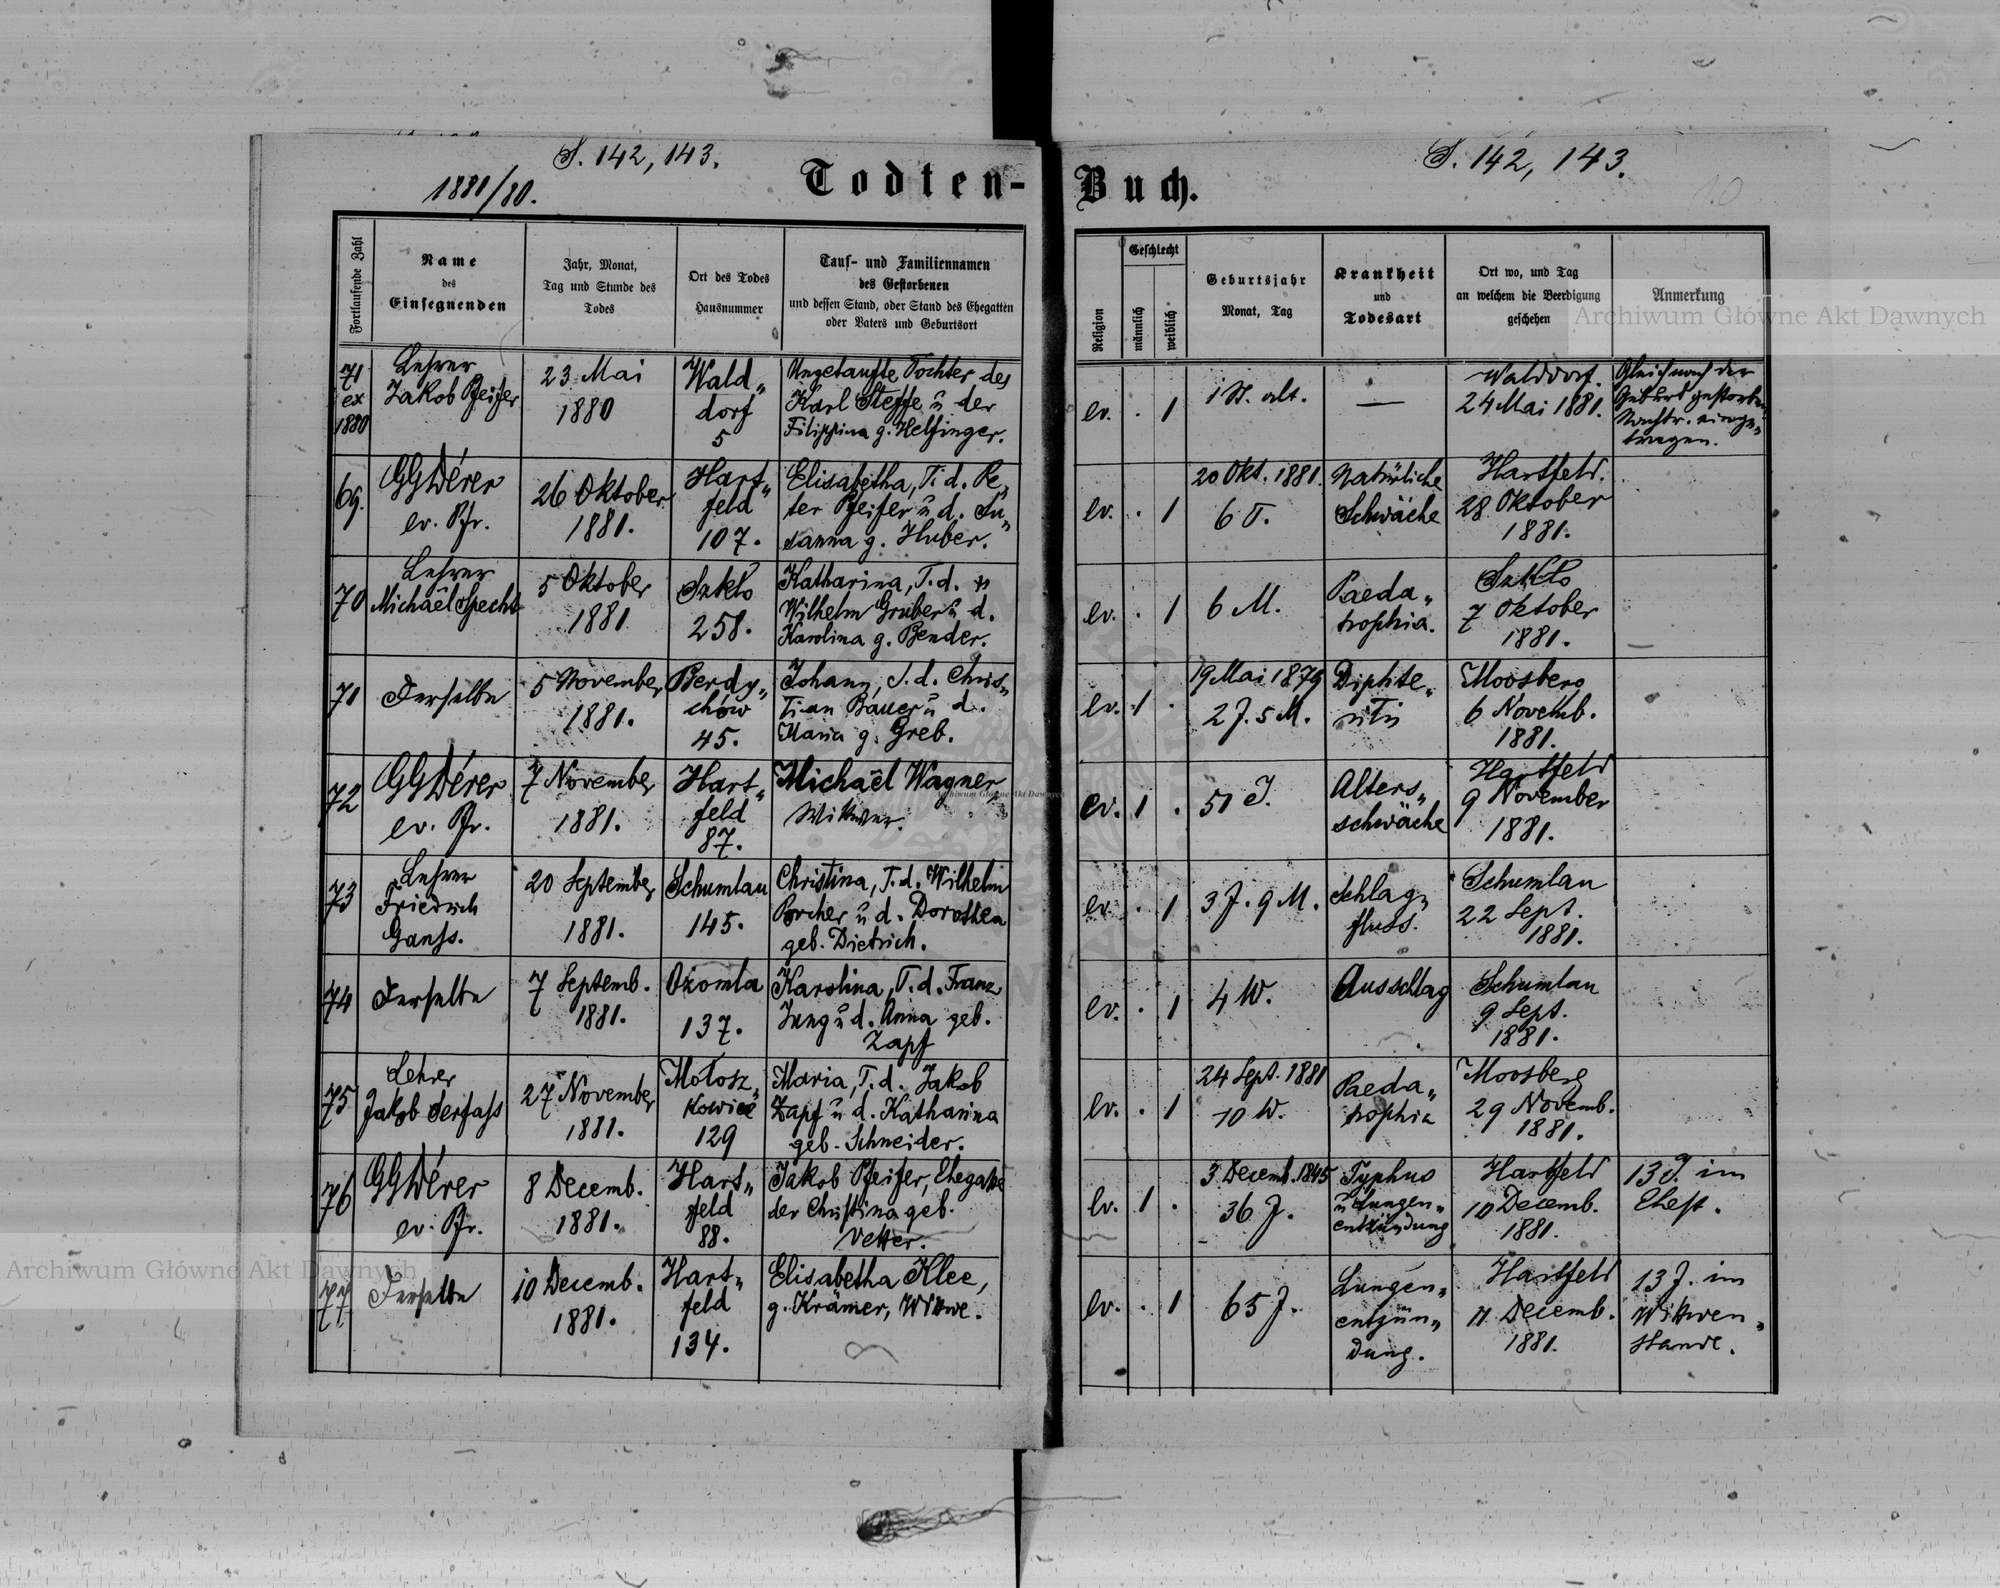 S. 142, 143.
1881/80.
Todten-
Fortlaufende Zahl
Name
des
Einsegnenden
Jahr, Monat,
Tag und Stunde des
Todes
Ort des Todes
Hausnummer
Tauf- und Familiennamen
des Gestorbenen
und dessen Stand, oder Stand des Ehegatten
oder Vaters und Geburtsort
71
ex
1880
Lehrer
Jakob Pfeifer
23 Mai
1880
Wald„
dorf
5
Ungetaufte Tochter des
Karl Steffe u der
Filippina g. Helfinger.
69.
GGDérer
ev. Pfr.
26 Oktober
1881.
Hart„
feld
107.
Elisabetha, T. d. Pe„
ter Pfeifer u d. Su„
sanna g. Huber.
70
Lehrer
Michaël Specht
5 Oktober
1881
Szkło
258.
Katharina, T. d.
Wilhelm Gruber u d.
Karolina g. Bender.
71
Derselbe
5 November
1881.
Berdy„
chów
45.
Johann, S. d. Chris„
tian Bauer u d.
Maria g. Greb.
72
GGDérer
ev. Pfr.
7 November
1881.
Hart„
feld
87.
Michaël Wagner,
Witwer.
73
Lehrer
Friedrich
Ganss.
20 September
1881.
Schumlau
145.
Christina, T. d. Wilhelm
Porcher u d. Dorothea
geb. Dietrich.
74
Derselbe
7 Septemb.
1881.
Ozomla
137.
Karolina, T. d. Franz
Jung u d. Anna geb.
Zapf
75
Lehrer
Jakob Serfass
27 November
1881.
Mołosz„
kowice
129
Maria, T. d. Jakob
Zapf u d. Katharina
geb. Schneider.
76
GGDérer
ev. Pfr.
8 Decemb.
1881.
Hart„
feld
88.
Jakob Pfeifer, Ehegatte
der Christina geb.
Vetter.
77
Derselbe
10 Decemb.
1881.
Hart„
feld
134.
Elisabetha Klee,
g. Krämer, Witwe.
S. 142, 143.
Buch.
Religion
Geschlecht
männlich
weiblich
Geburtsjahr
Monat, Tag
Krankheit
und
Todesart
Ort wo, und Tag
an welchem die Beerdigung
geschehen
Anmerkung
ev. . 1
1 St. alt.
—
Walddorf.
24 Mai 1881.
Gleich nach der
Geburt gestorben
Nachtr. einge„
tragen.
ev. . 1
20 Okt. 1881.
6 T.
Natürliche
Schwäche
Hartfeld.
28 Oktober
1881.
ev. . 1
6 M.
Paeda„
trophia.
Szkło
7 Oktober
1881.
ev. 1 .
19 Mai 1879
2 J. 5 M.
Diphte„
ritis
Moosberg
6 Novemb.
1881.
ev. 1 .
51 J.
Alters„
schwäche
Hartfeld
9 November
1881.
ev. . 1
3 J. 9 M.
Schlag„
fluss.
Schumlau
22 Sept.
1881.
ev. . 1
4 W.
Ausschlag
Schumlau
9 Sept.
1881.
ev. . 1
24 Sept. 1881
10 W.
Paeda„
trophia
Moosberg
29 Novemb.
1881.
ev. 1 .
3 Decemb. 1845
36 J.
Typhus
u Lungen„
entzündung
Hartfeld
10 Decemb.
1881.
13 J. im
Ehest.
ev. . 1
65 J.
Lungen„
entzün„
dung.
Hartfeld
11 Decemb.
1881.
13 J. im
Witwen„
stande.
Archiwum Główne Akt Dawnych
Archiwum Główne Akt Dawnych
Archiwum Główne Akt Dawnych